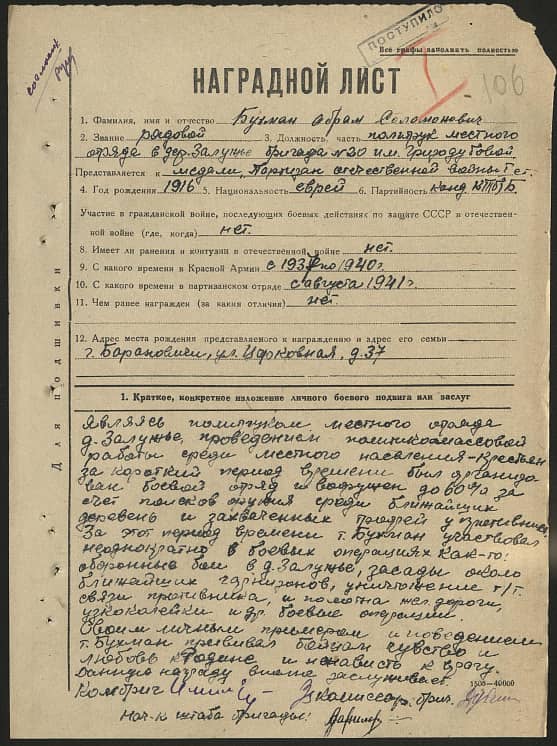 ПОСТУПИЛО
Все графы заполнять полностью
106
НАГРАДНОЙ ЛИСТ
1. Фамилия, имя и отчество Бухман Абрам Соломонович
2. Звание рядовой 3. Должность, часть политрук местного
отряда в дер. Залужье бригада №30 им.
Представляется к медали „Партизан отечественной войны I ст.
4. Год рождения 1916 5. Национальность еврей 6. Партийность канд. ВКП(б)
Участие в гражданской войне, последующих боевых действиях по защите СССР и отечествен-
ной войне (где, когда) нет.
8. Имеет ли ранения и контузии в отечественной войне нет.
9. С какого времени в Красной Армии по 1940г.
10. С какого времени в партизанском отряде с августа 1941г.
11. Чем ранее награжден (за какия отличия) нет.
12. Адрес места рождения представляемого к награждению и адрес его семьи
г. Барановичи, ул. Церковная, д. 37
Для подшивки
1. Краткое, конкретное изложение личного боевого подвига или заслуг
Являясь политруком местного отряда
д. Залужье, проведением политикомассовой
работы среди местного населения-крестьян
за короткий период времени был организо
ван боевой отряд и вооружен до 60% за
счет поисков оружия среди ближайших
деревень и захваченных трофей у противника.
За этот период времени т. Бухман участвовал
неоднократно в боевых операциях как-то:
оборонные бои в д. Залужье, засады около
ближайших гарнизонов, уничтожение т/т.
связи противника, и полотна жел. дороги,
узкоколейки и др. боевые операции.
Своим личным примером и поведением
т. Бухман прививал бойцам чувство и
любовь к Родине и ненависть к врагу.
Данную награду вполне заслуживает.
1500—40000
Комбриг Комиссар бриг.
Нач-к штаба бригады: